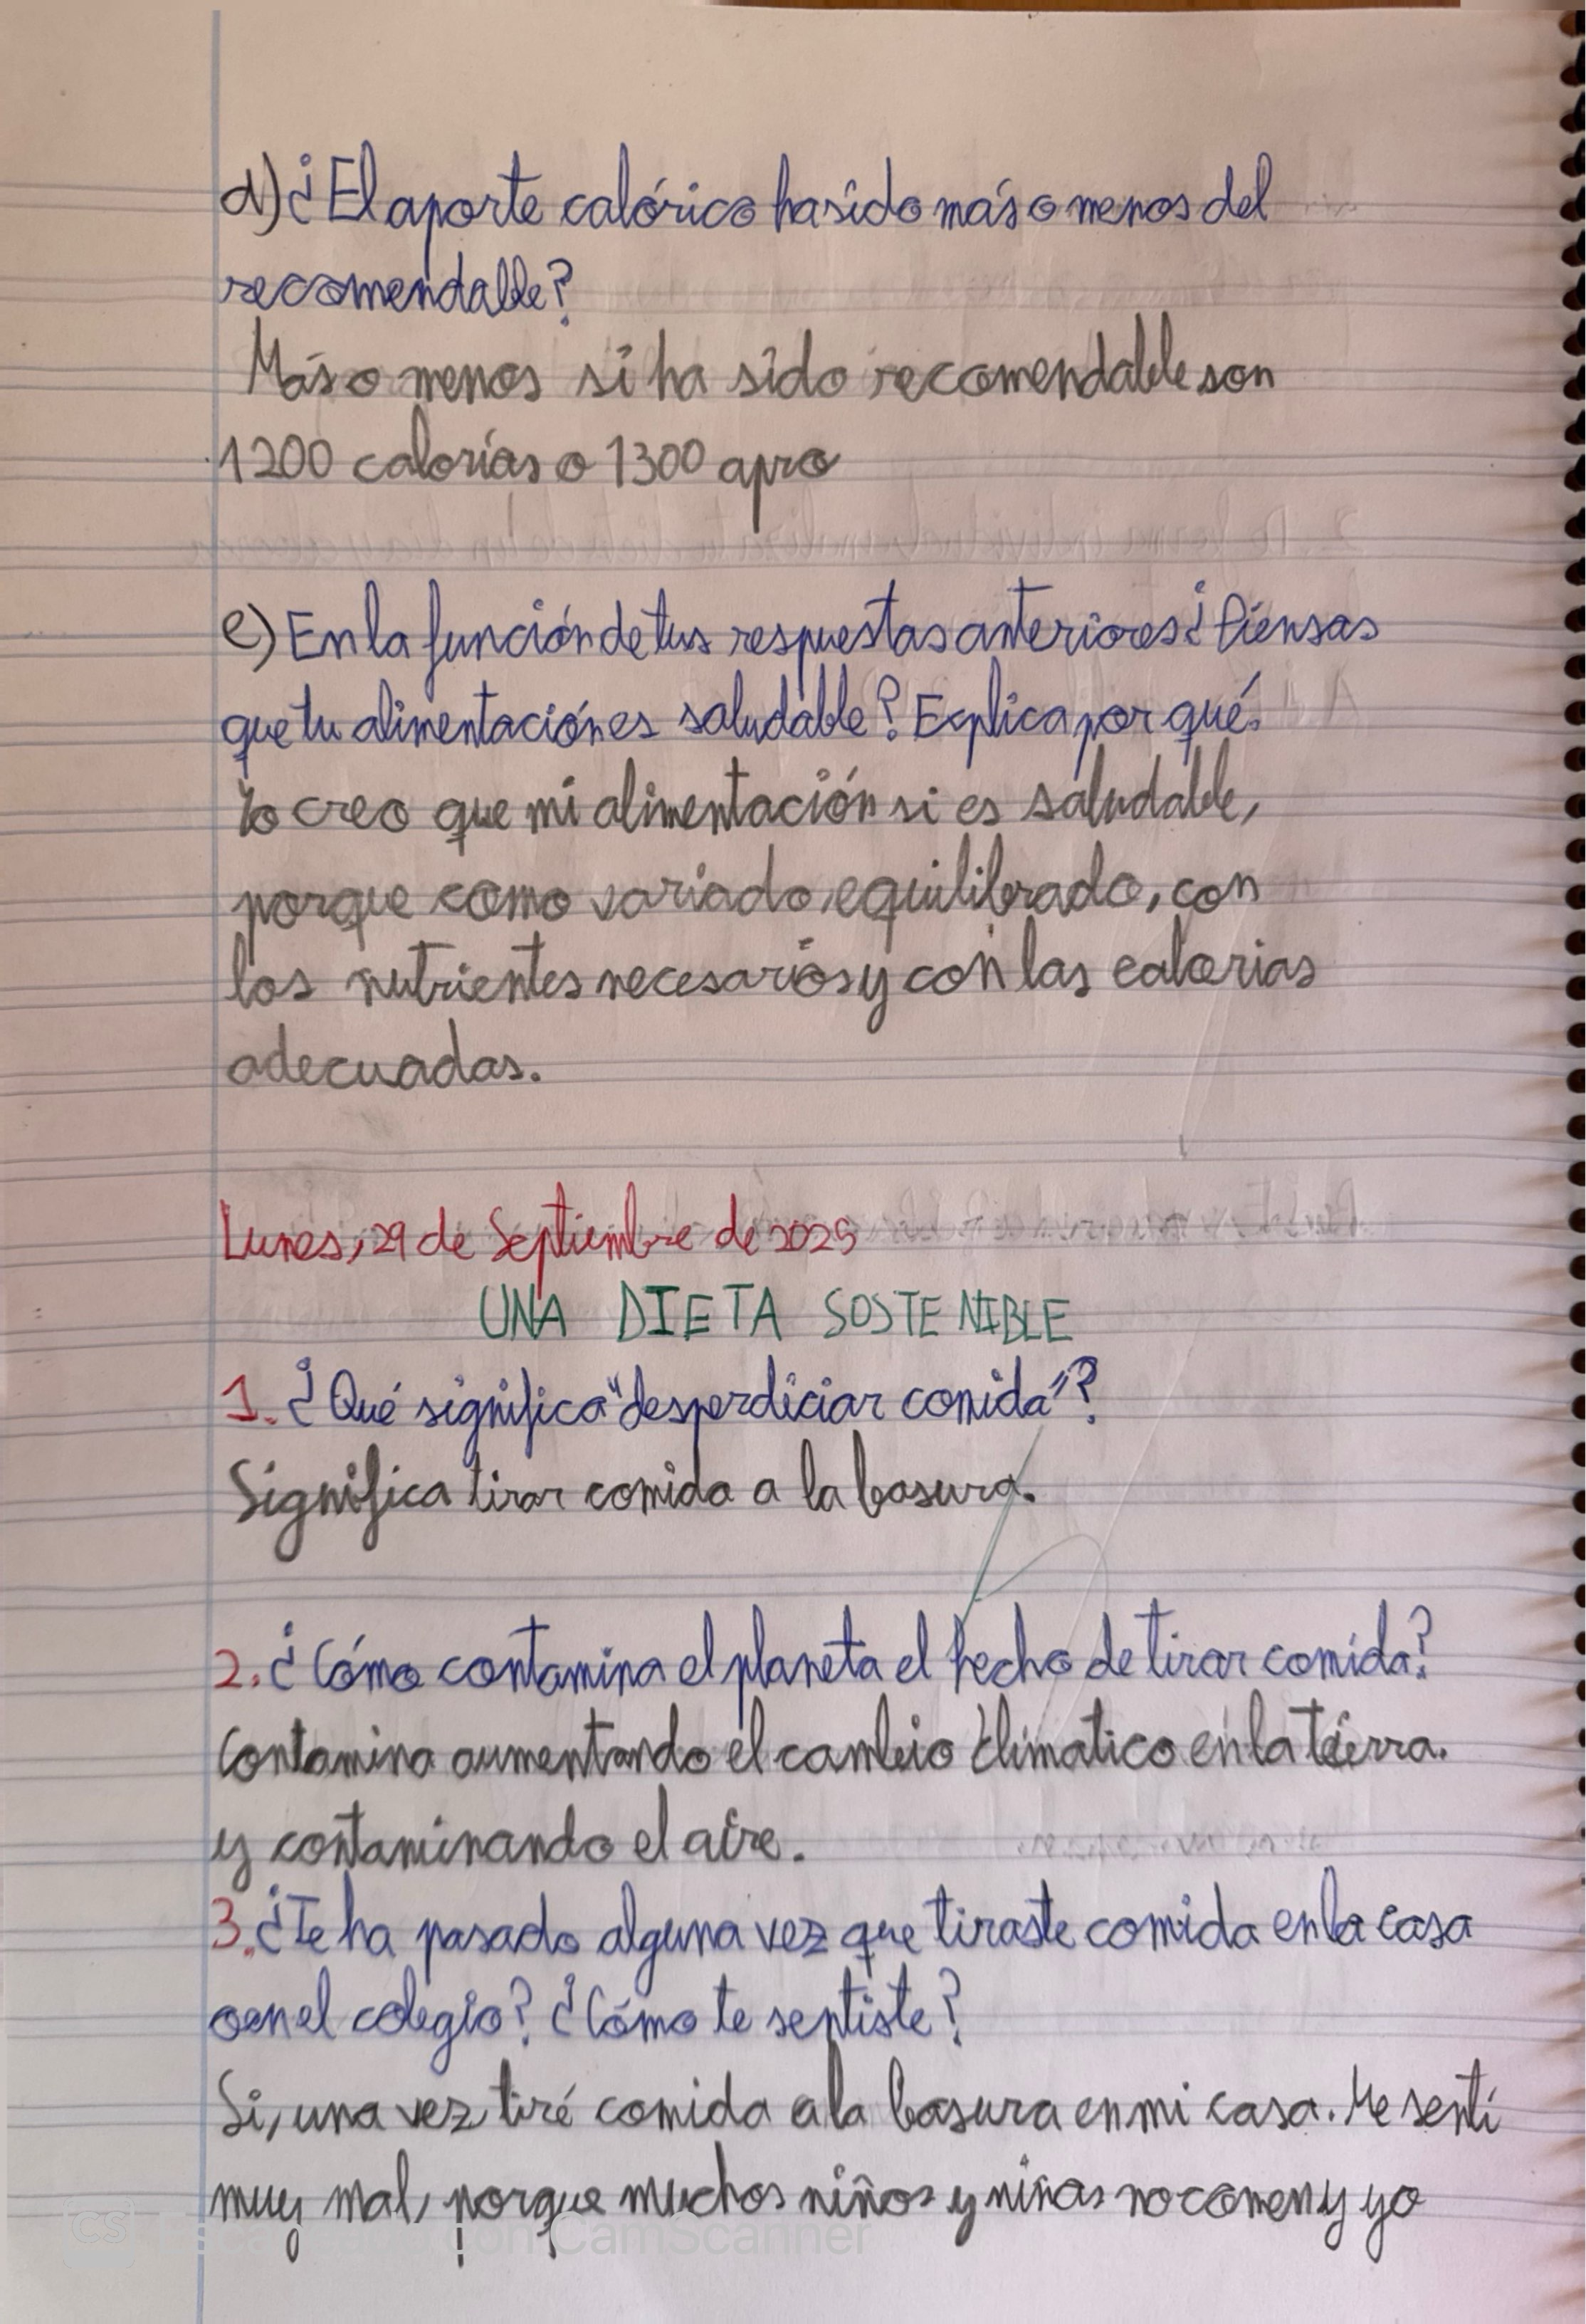 d) ¿El aporte calórico ha sido más o menos del
recomendable?
Más o menos si ha sido recomendable son
1200 calorías o 1300 apro
e) En la función de tus respuestas anteriores ¿Piensas
que tu alimentación es saludable? Explica por qué.
Yo creo que mi alimentación si es saludable,
porque como variado, equilibrado, con
los nutrientes necesarios y con las calorias
adecuadas.
Lunes, 29 de Septiembre de 2025
UNA DIETA SOSTENIBLE
1. ¿Qué significa "desperdiciar comida"?
Significa tirar comida a la basura.
2. ¿Cómo contamina el planeta el hecho de tirar comida?
Contamina aumentando el cambio climatico en la tierra.
y contaminando el aire.
3. ¿Te ha pasado alguna vez que tiraste comida en la casa
o en el colegio? ¿Cómo te sentiste?
Si, una vez tiré comida a la basura en mi casa. Me sentí
muy mal, porque muchos niños y niñas no comen y yo
CS con CamScanner